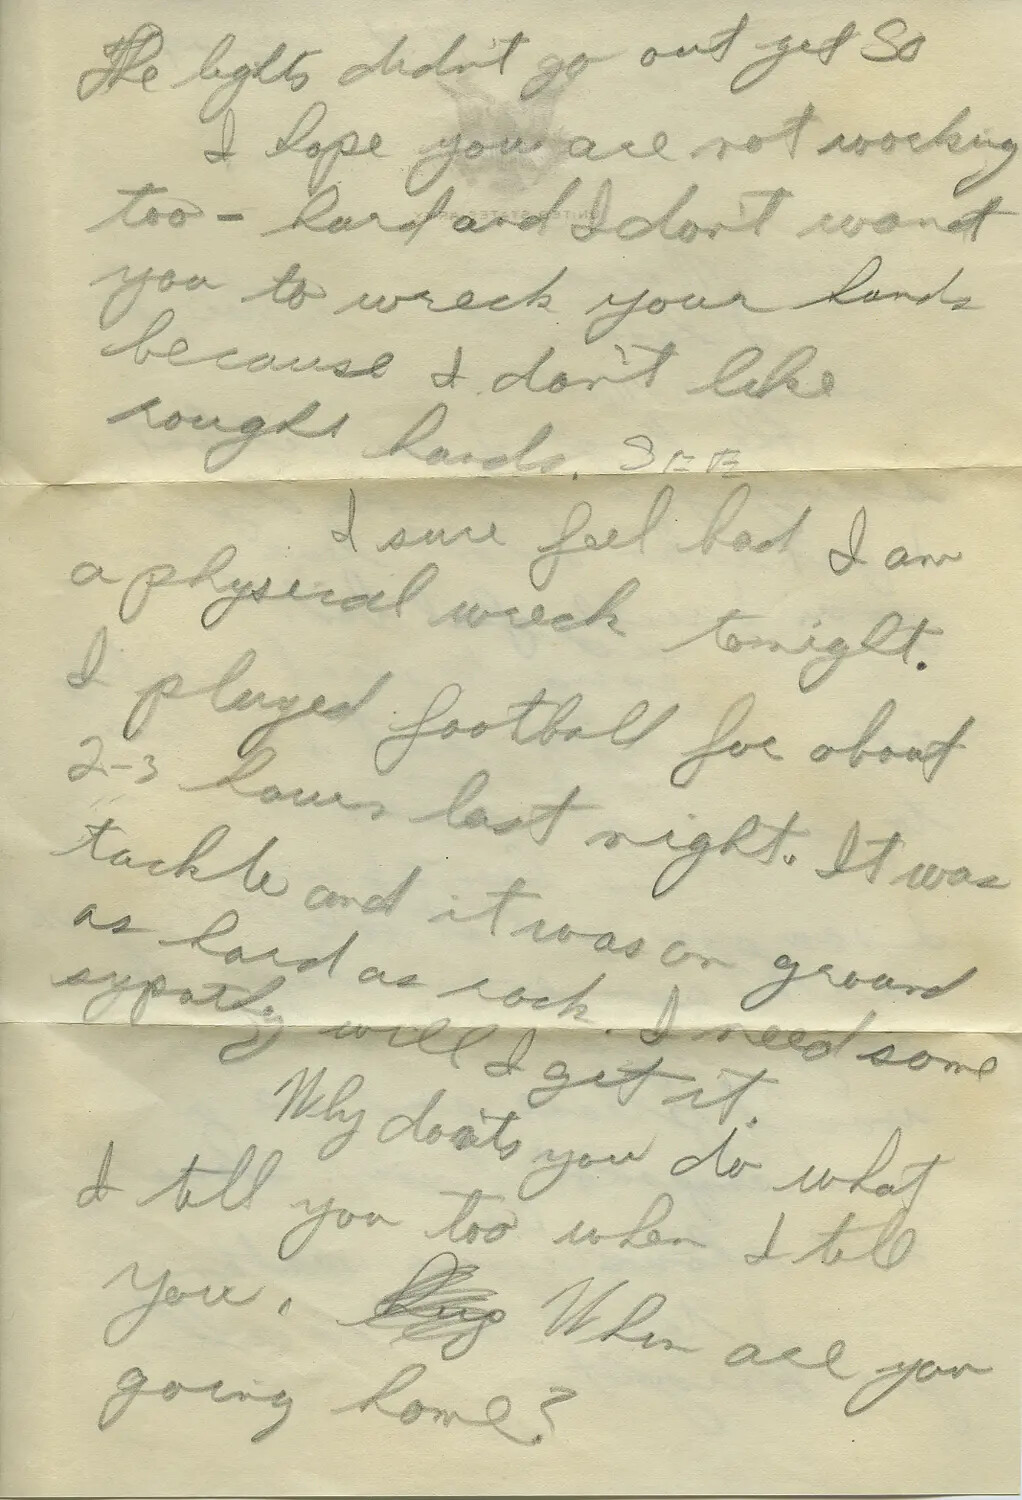 The lights didn't go out yet So
I hope you are not working
too - hard and I don't want
you to wreck your hands
because I don't like
rough hands. SEE
I sure feel bad I am
a physical wreck tonight.
I played football for about
2-3 hours last night. It was
tackle and it was on ground
as hard as rock. I need some
sypathy will I get it.
Why don'ts you do what
I tell you too when I tell
you. When are you
going home?